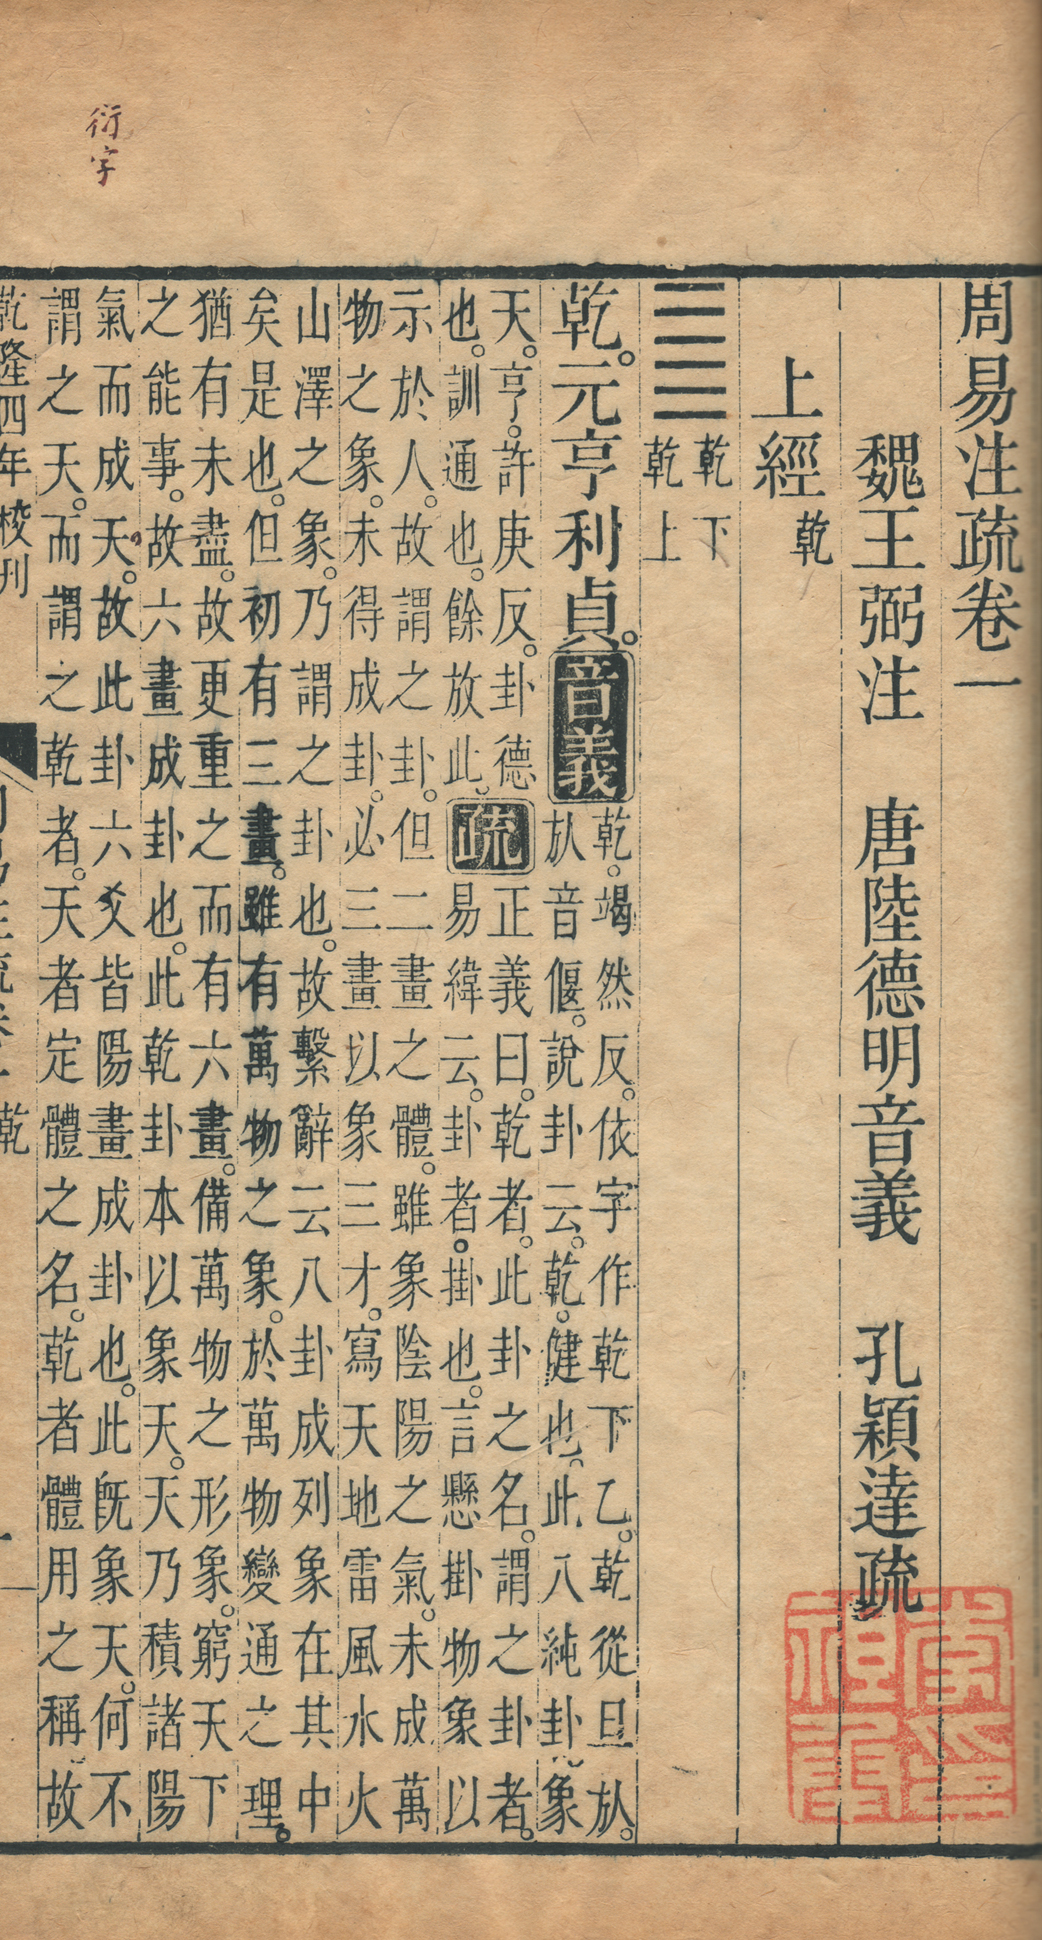 周易注疏卷一
魏王弼注　唐陸德明音義　孔穎達疏
上經　乾
䷀
乾下
乾上
乾。元亨利貞。音義
乾。竭然反。依字作乾下乙。乾從旦㫃。
㫃音偃。說卦云。乾。健也。此八純卦。象
天。亨。許庚反。卦德
也。訓通也。餘放此。疏
正義曰。乾者。此卦之名。謂之卦者。
易緯云。卦者。掛也。言懸掛物象以
示於人。故謂之卦。但二畫之體。雖象陰陽之氣。未成萬
物之象。未得成卦。必三畫以象三才。寫天地雷風水火
山澤之象。乃謂之卦也。故繫辭云八卦成列象在其中
矣是也。但初有三畫。雖有萬物之象。於萬物變通之理。
猶有未盡。故更重之而有六畫。備萬物之形象。窮天下
之能事。故六畫成卦也。此乾卦本以象天。天乃積諸陽
氣而成天。故此卦六爻皆陽畫成卦也。此旣象天。何不
謂之天。而謂之乾者。天者定體之名。乾者體用之稱。故
乾隆四年校刊
乾
一
衍字